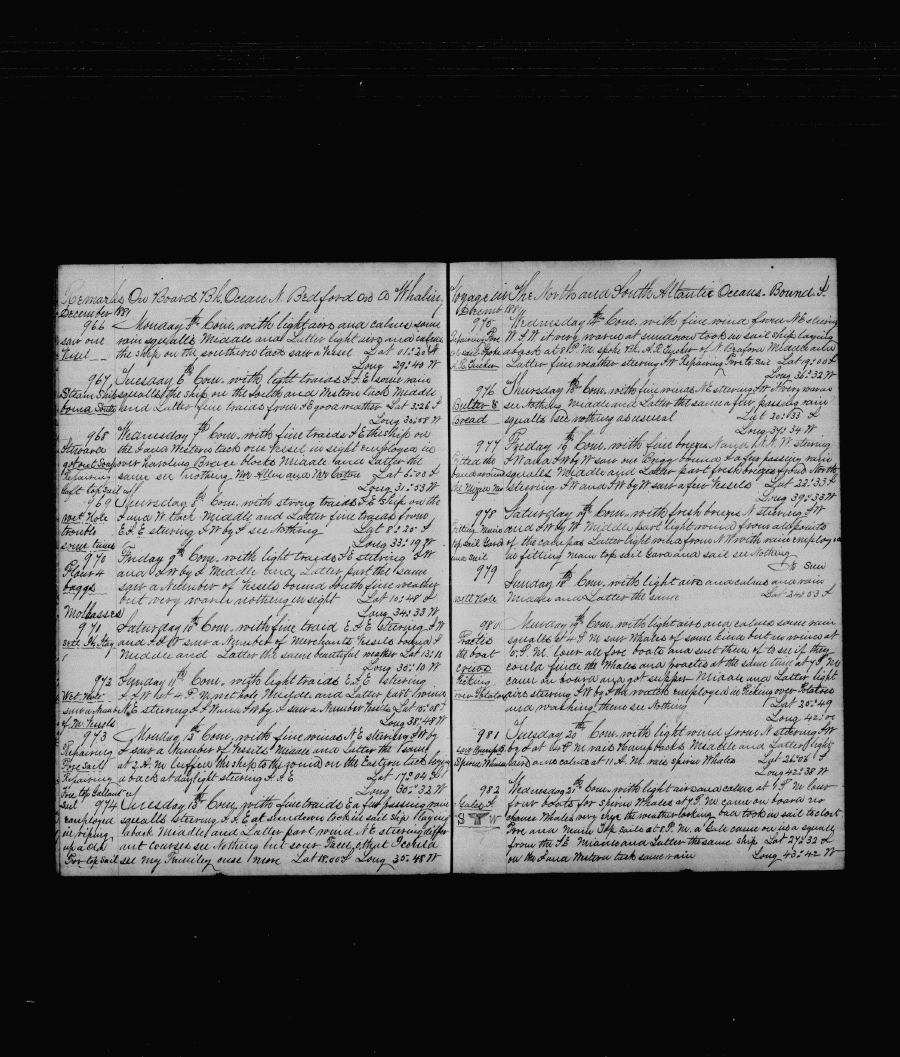 Remarks On Board Bk Ocean N. Bedford on a Whaling
December 1881
966 Monday 5th Com. with light airs and calms some
saw one rain squalls Middle and Latter light airs and calms
Vessel the ship on the southern tack saw a Vessel Lat 01:20 S
Long 29:40 W
967 Tuesday 6th Com. with light traids S.S.E some rain
Steam Ship squalls the ship on the South and Western tack Middle
bound South and Latter fine traids from S.E good weather Lat 3:26 S
Long 30:58 W
968 Wednesday 7th Com. with fine traids S.E the ship on
Steward the S and Western tack one Vessel in sight employed in
got out Soap over hawling Brace blocks Middle and Latter the
Repairing same see nothing Mr Allen and
Long 31:53 W
969 Thursday 8th Com. with strong traids S.E ship on the
wet hole S and W. tack Middle and Latter fine traids from
trouble E.S.E stering S W by S see Nothing Lat 8:20 S
some times Long 33:19 W
970 Friday 9th Com. with light traids S.E stering S W
Flour 4 and S W by S Middle and Latter part the same
baggs saw a Number of Vessels bound South fine weather
but very warm nothing in sight Lat 10:48 S
Molasses Long 34:33 W
971 Saturday 10th Com. with fine traid E.S.E stering S W
and S.S.W saw a Number of Merchants Vessels bound S
Middle and Latter the same beautiful weather Lat 13:11
Long 36:10 W
972 Sunday 11th Com. with light traids E.S.E stering
Wet Hole S.S.W at 4 P.M wet hole Middle and Latter part wind
N.E stering S.S W and S W by S saw a Number Vessels Lat 15:08 S
of M. Vessels Long 38:48 W
973 Monday 12 Com. with fine winds N.E stering S W by
Repairing S saw a Number of Vessels Middle and Latter the same
Fore Sail at 2 A.M luffed the ship to the wind on the Eastern tack laying
Repairing a back at daylight stering S.S.E Lat 17:04 S
Fore top Gallant Long 36:32 W
sail
974 Tuesday 13th Com. with fine traids E a few passing rain
employed squalls stering S.S.E at sundown took in sail ship laying
in riping aback Middle and Latter part wind N.E stering differ
up a old ant courses see Nothing but I could
For top Sail see my Family once more Lat 18:00 S Long 35:48 W
Voyage in The North and South Atlantic Oceans. Bound S.
December 1881
975 Wednesday 14th Com. with fine wind from N.E stering
Repairing Fore W.S.W it very warm at sundown took in sail ship laying
aback at 8 P.M. spoke Bk. A.R. Tucker of N Bedford Middle and
A.R. Tucker Latter fine weather stering S W Repairing Fore to sail Lat 19:00 S
Long 36:32 W
976 Thursday 15th Com. with fine winds N.E stering S W very warm
Butter & see Nothing Middle and Latter the same a few passing rain
Bread squalls see nothing as useual Lat 20:33 S
Long 37:34 W
977 Friday 16th Com. with fine brezes N and N.N.W. stering
S W and S W by W saw one Brigg bound S a few passing rain
squalls Middle and Latter part fresh brezes from North
stering S W and S W by W saw a few Vessels Lat 22:33 S
Long 39:33 W
978 Saturday 17th Com. with fresh brezes N stering S W
and S W by W Middle part light wind from all points
top Sail Yard of the compas Latter light winds from N.W with rain employed
and sail in fitting main top sail Yard and sail see Nothing
No Sun
979 Sunday 18th Com. with light airs and calms and rain
wet Hole Middle and Latter the same Lat 24:53 S
980 Monday 19th Com. with light airs and calms some rain
Practis squalls at 4 P.M saw Whales of some kind but in winds at
the boat 5 P.M. lower all fore boats and sent them to see if they
crews could finde the Whales and practes at the same time at 7 P.M
Picking came on board and got supper Middle and Latter light
over Potatoes airs stering S W by S the watch employed in Picking over Potatoes
and washing them see Nothing Lat 25:49
Long 42:01
981 Tuesday 20th Com. with light wind from N stering S W
saw Humpb by S at 4 P.M rais Humpbacks Middle and Latter light
Sperm Whales airs and calms at 11 A.M. rais sperm Whales Lat 26:06 S
Long 42:38 W
982 Wednesday 21st Com. with light airs and calms at 1 P.M lower
four boats for sperm Whales at 7 P.M came on board no
S W Whales very shye the weather looking bad took in sail to close
Fore and Main Top sails at 8 P.M. a Gale came on us a squall
from the S.E Middle and Latter the same ship Lat 27:32 S
on the S and Western tack some rain Long 43:42 W